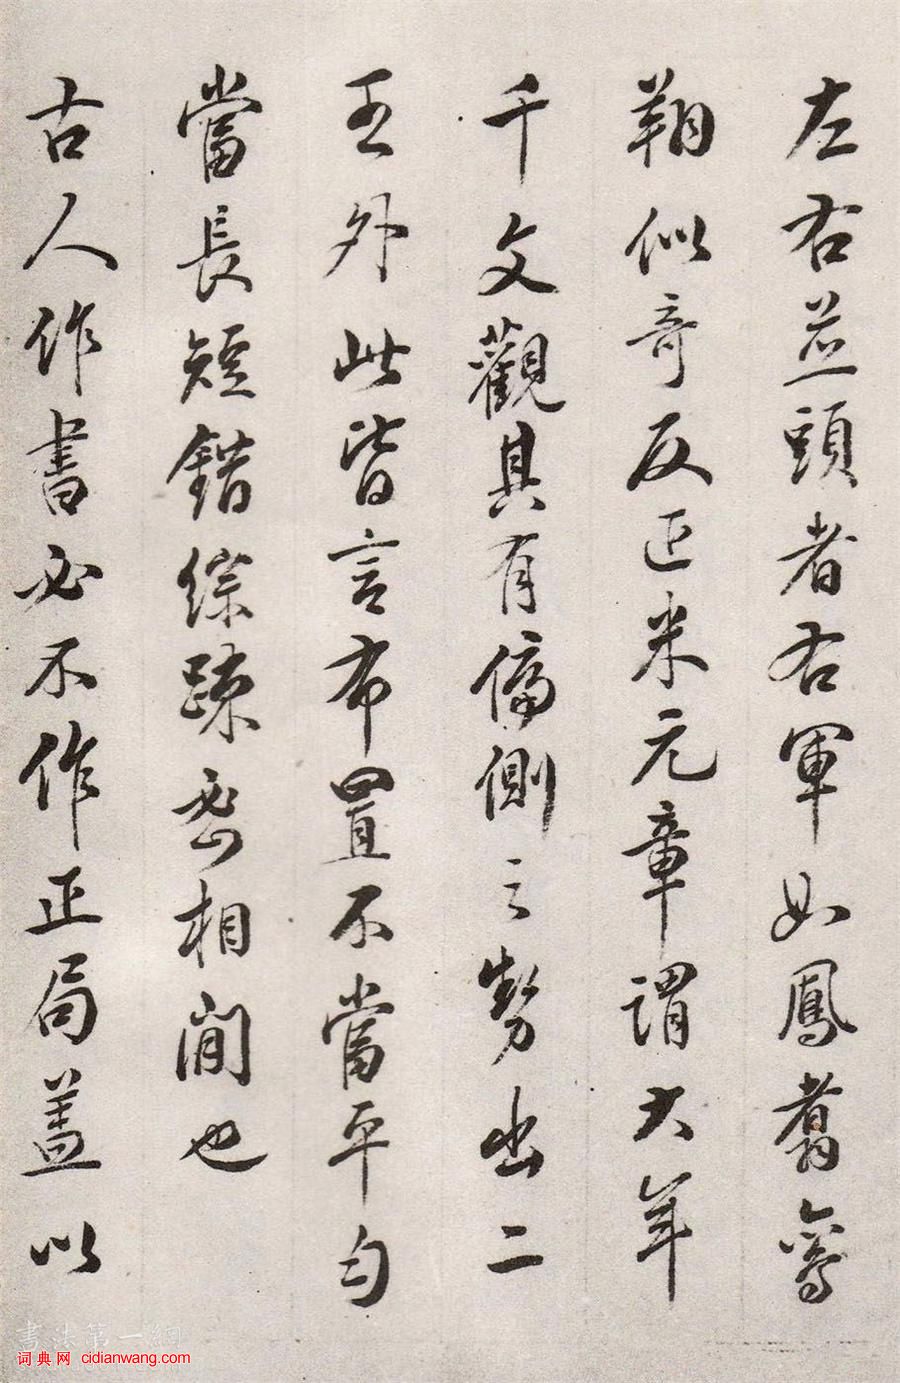 左右並頭者右軍如鳳翥鸞
翔似奇反正米元章謂大年
千文觀其有偏側之勢出二
王外此皆言布置不當平勻
當長短錯綜踈密相間也
古人作書必不作正局蓋以
書法第一網
词典网 cidianwang.com